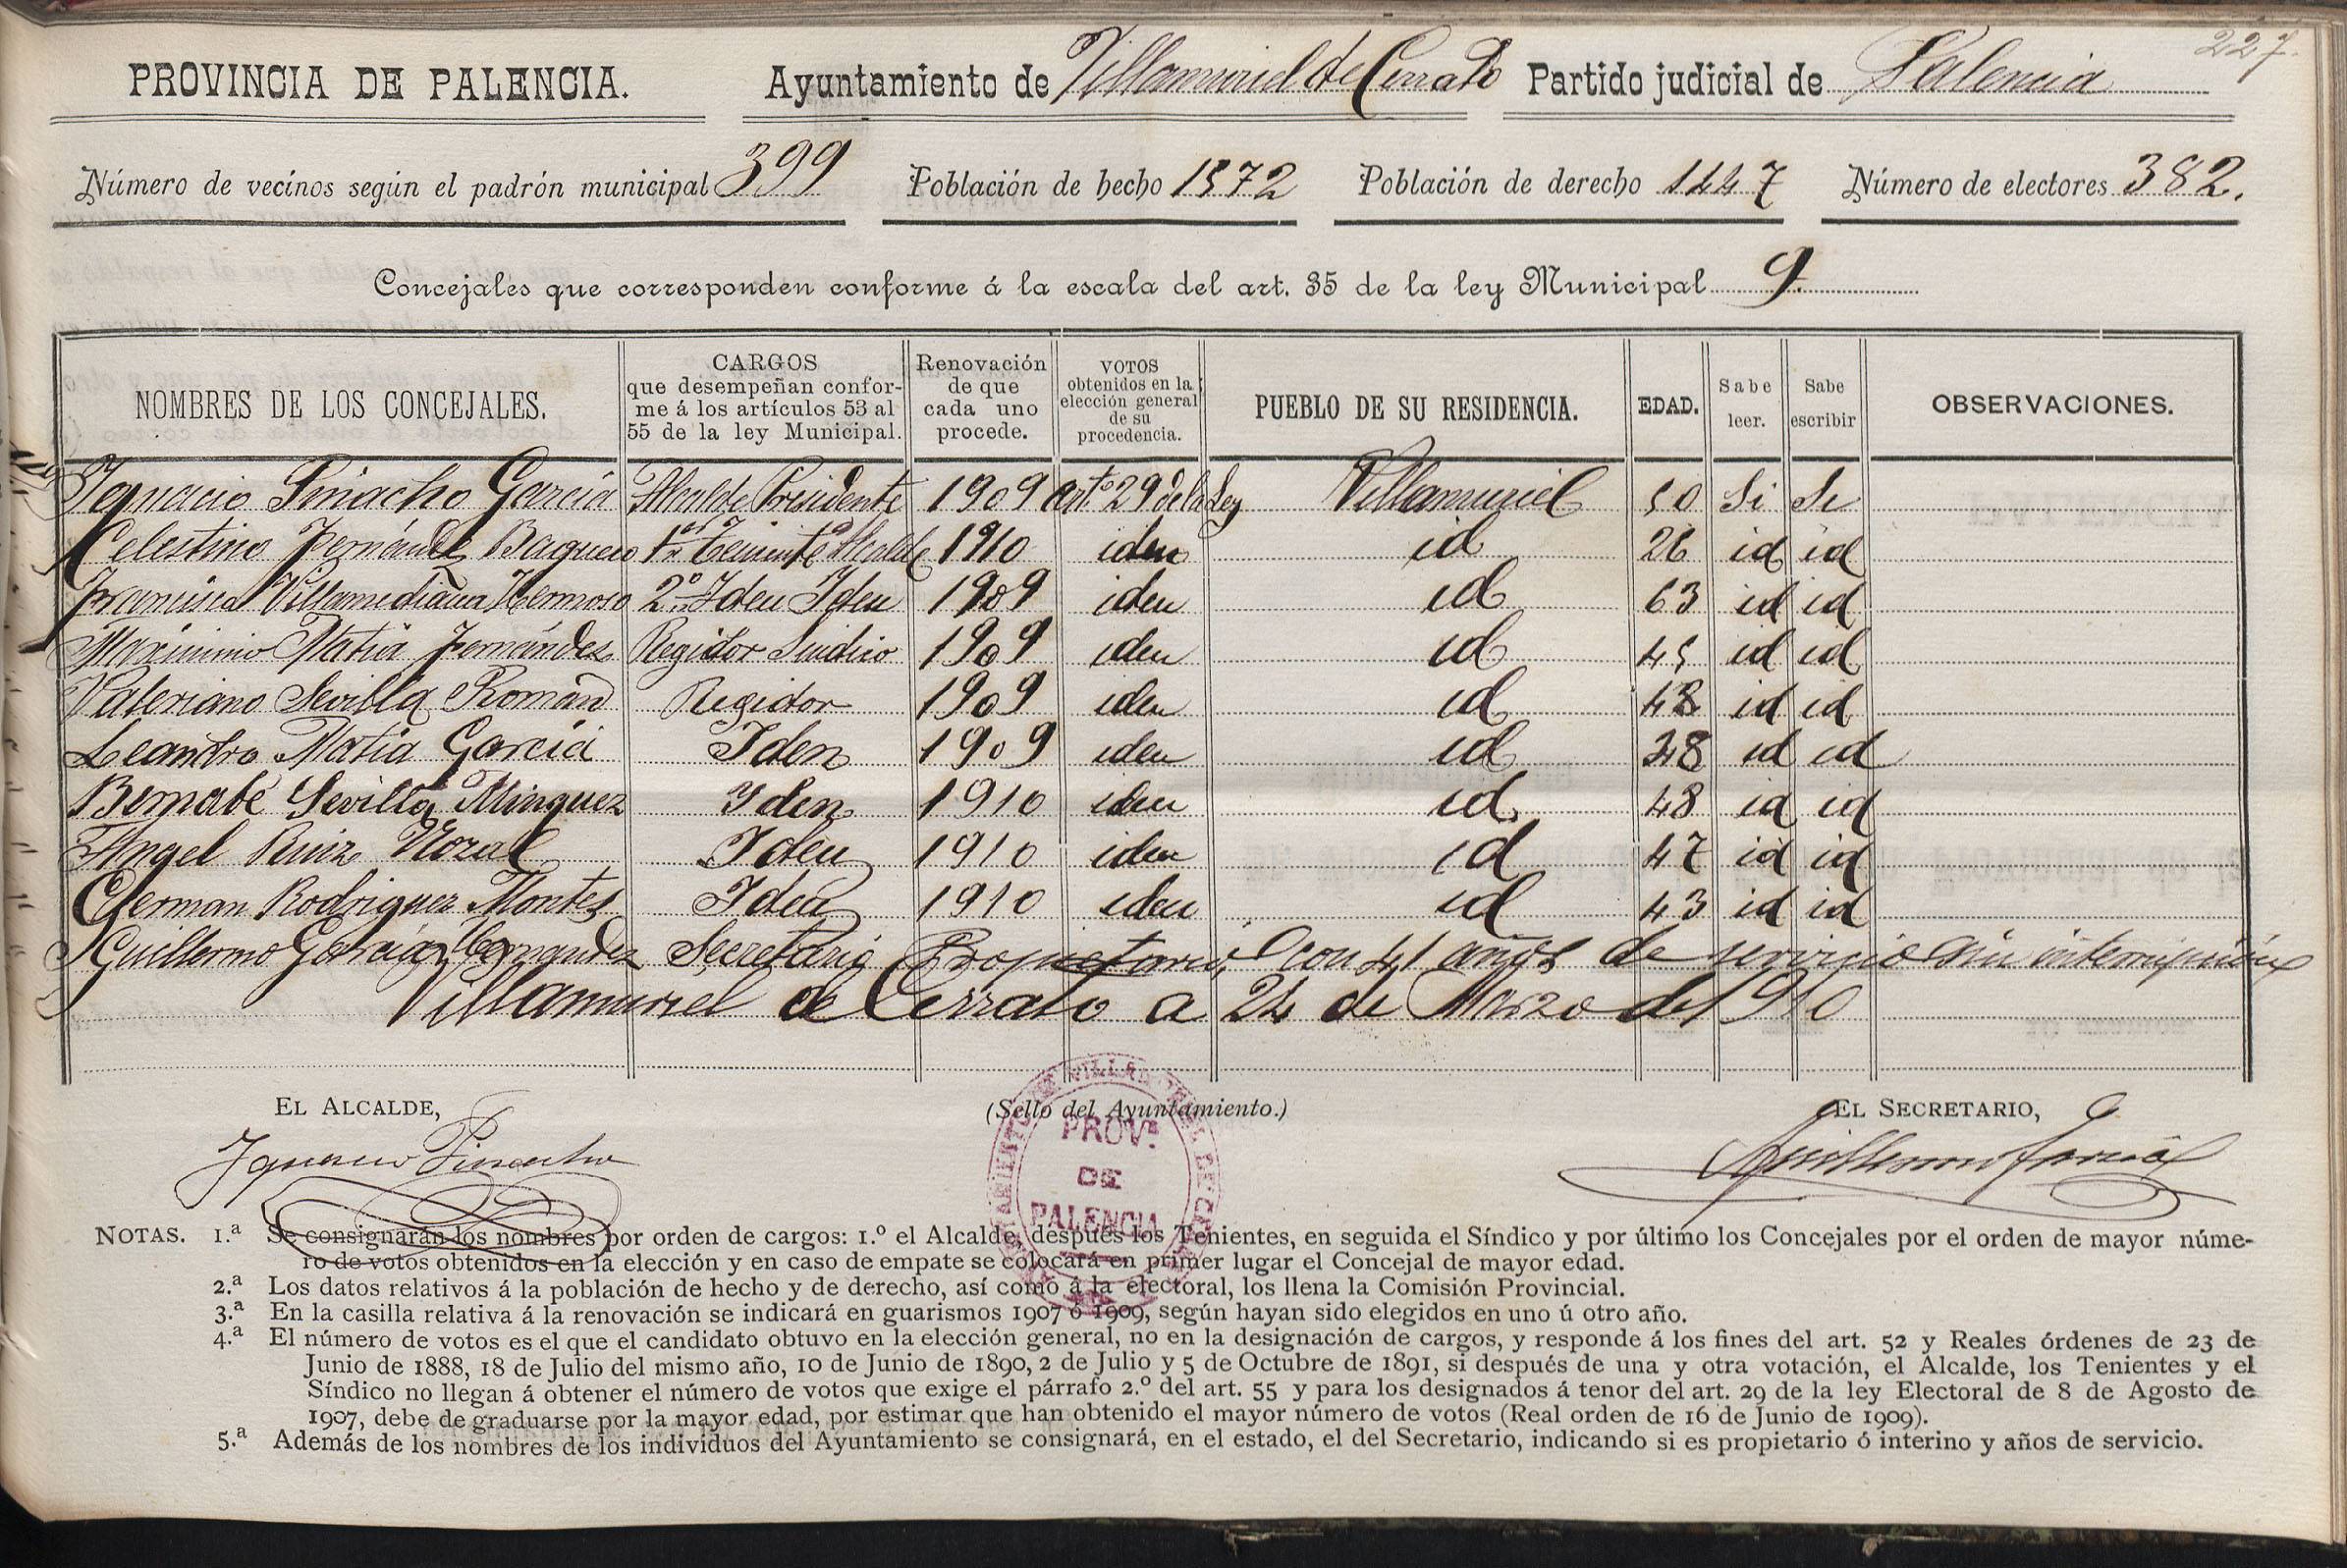 227.
PROVINCIA DE PALENCIA. Ayuntamiento de Villamuriel de Cerrato Partido judicial de Palencia
Número de vecinos según el padrón municipal 399 Población de hecho 1372 Población de derecho 1447 Número de electores 382.
Concejales que corresponden conforme á la escala del art. 35 de la ley Municipal 9.
NOMBRES DE LOS CONCEJALES. CARGOS que desempeñan conforme á los artículos 53 al 55 de la ley Municipal. Renovación de que cada uno procede. VOTOS obtenidos en la elección general de su procedencia. PUEBLO DE SU RESIDENCIA. EDAD. Sabe leer. Sabe escribir OBSERVACIONES.
Ignacio Pinacho García Alcalde Presidente 1909 artº 29 de la Ley Villamuriel 50 Si Si
Celestino Fernández Baquero 1er Teniente Alcalde 1910 iden id 26 id id
Francisco Villamediana Hermoso 2º Iden Iden 1909 iden id 63 id id
Maximino Matia Fernández Regidor Sindico 1909 iden id 45 id id
Valeriano Sevilla Roman Regidor 1909 iden id 48 id id
Leandro Matia García Iden 1909 iden id 48 id id
Bernabé Sevilla Minguez Iden 1910 iden id 48 id id
Angel Ruiz Nozal Iden 1910 iden id 47 id id
German Rodriguez Montes Iden 1910 iden id 43 id id
Guillermo García Secretario Propietario con 41 años de servicio sin interrupción
Villamuriel de Cerrato a 24 de Marzo de 1910
EL ALCALDE, (Sello del Ayuntamiento.) EL SECRETARIO,
Ignacio Pinacho Guillermo García
PROVª
DE
PALENCIA
NOTAS. 1.ª Se consignarán los nombres por orden de cargos: 1.º el Alcalde, después los Tenientes, en seguida el Síndico y por último los Concejales por el orden de mayor núme-
ro de votos obtenidos en la elección y en caso de empate se colocará en primer lugar el Concejal de mayor edad.
2.ª Los datos relativos á la población de hecho y de derecho, así como á la electoral, los llena la Comisión Provincial.
3.ª En la casilla relativa á la renovación se indicará en guarismos 1907 ó 1909, según hayan sido elegidos en uno ú otro año.
4.ª El número de votos es el que el candidato obtuvo en la elección general, no en la designación de cargos, y responde á los fines del art. 52 y Reales órdenes de 23 de
Junio de 1888, 18 de Julio del mismo año, 10 de Junio de 1890, 2 de Julio y 5 de Octubre de 1891, si después de una y otra votación, el Alcalde, los Tenientes y el
Síndico no llegan á obtener el número de votos que exige el párrafo 2.º del art. 55 y para los designados á tenor del art. 29 de la ley Electoral de 8 de Agosto de
1907, debe de graduarse por la mayor edad, por estimar que han obtenido el mayor número de votos (Real orden de 16 de Junio de 1909).
5.ª Además de los nombres de los individuos del Ayuntamiento se consignará, en el estado, el del Secretario, indicando si es propietario ó interino y años de servicio.